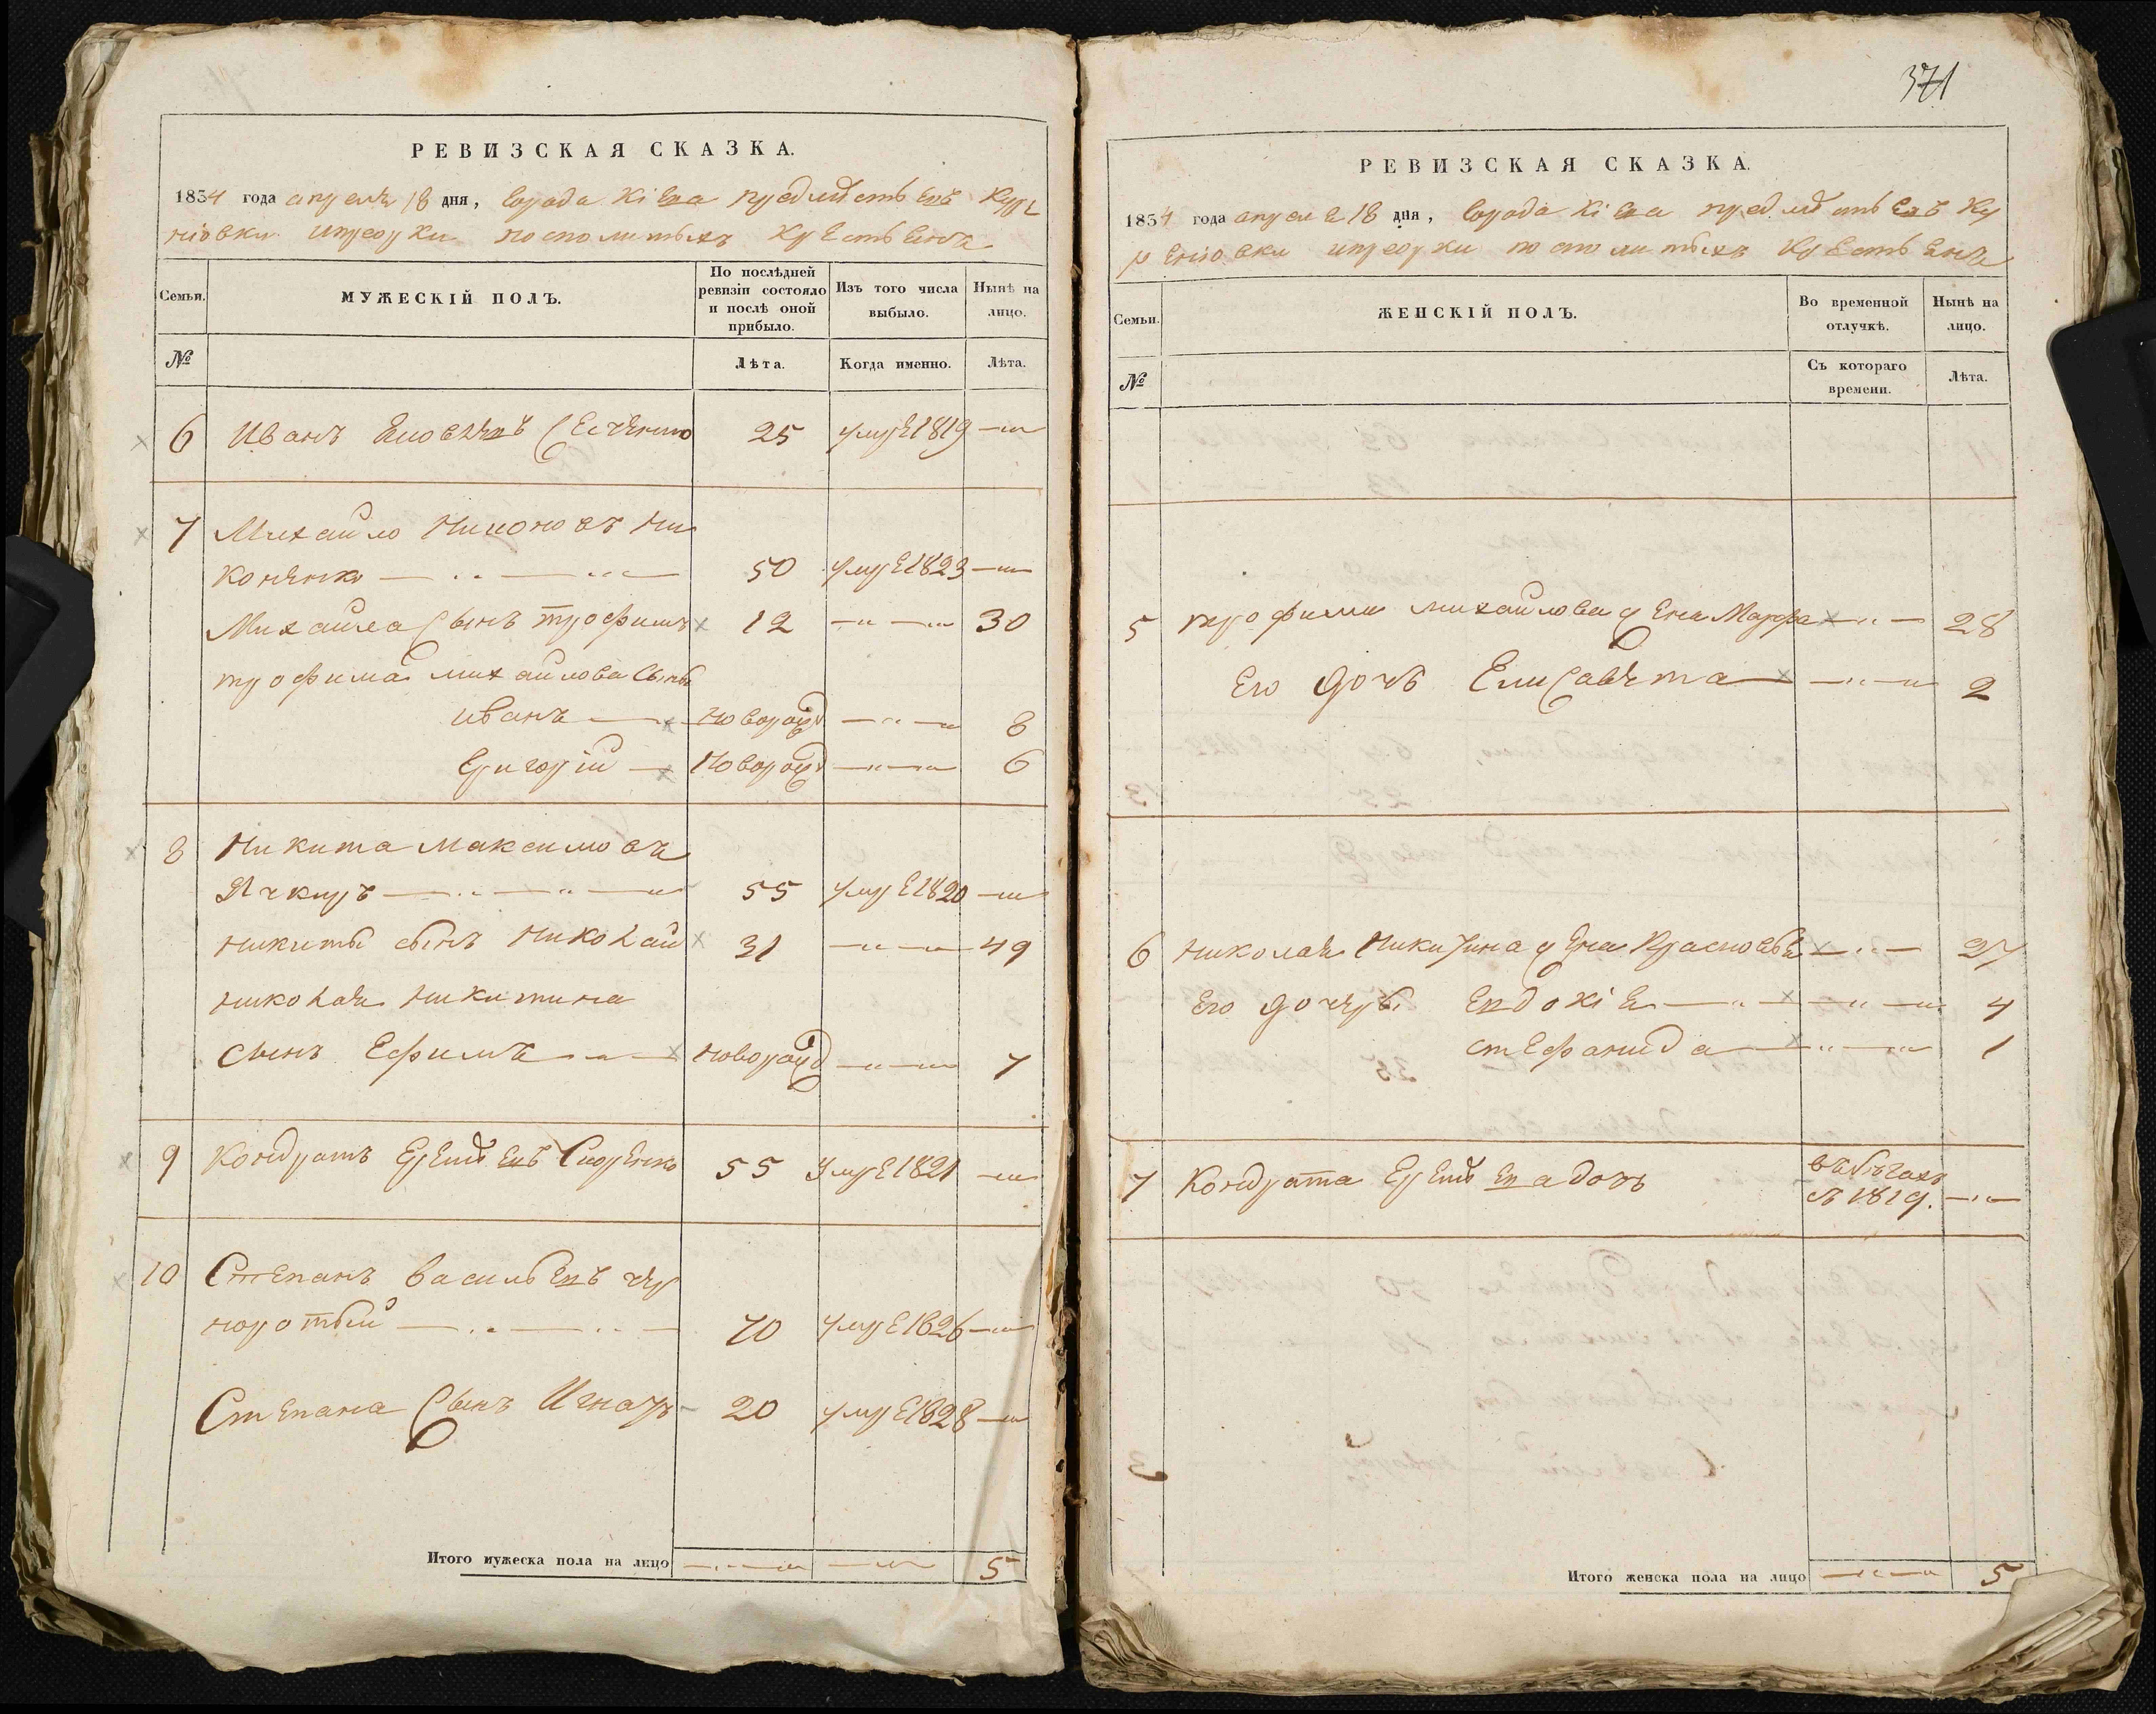 371
РЕВИЗСКАЯ СКАЗКА.
1834 года апреля 18 дня, города Кіева предмѣстьевъ Куре
ніовки
посполитыхъ крестьянъ
Семьи.
МУЖЕСКІЙ ПОЛЪ.
По послѣдней ревизіи состояло и послѣ оной прибыло.
Изъ того числа выбыло.
Нынѣ на лицо.
№
Лѣта.
Когда именно.
Лѣта.
6 Иванъ 25 умре 1819 —
7 Михайло Никоновъ Ни
коненко — 50 умре 1823 —
Михайла сынъ трофимъ 12 — 30
трофима михайлова сыны
иванъ — новорожд — 8
Григорій — Новорожд — 6
8 Никита Максимовъ
— 55 умре 1820 —
никиты сынъ николай 31 — 49
николая никитина
сынъ Ефимъ — новорожд — 7
9 Кондратъ Сидоренко 55 Умре 1821 —
10 Степанъ васильевъ чер
норотый — 70 умре 1826 —
Степана сынъ Игнатъ 20 умре 1828 —
Итого мужеска пола на лицо — — 5
РЕВИЗСКАЯ СКАЗКА.
1834 года апреля 18 дня, города Кіева предмѣстьевъ Ку
реніовки
посполитыхъ крестьянъ
Семьи.
ЖЕНСКІЙ ПОЛЪ.
Во временной отлучкѣ.
Нынѣ на лицо.
№
Съ котораго времени.
Лѣта.
5 трофима михайлова жена Марфа — 28
Его дочь Елисавета — 2
6 николая Никитина жена — 27
Его дочери Евдокіа — 4
стефанида — 1
7 Кондрата дочь въ бѣгахъ
съ 1819. —
Итого женска пола на лицо — 5